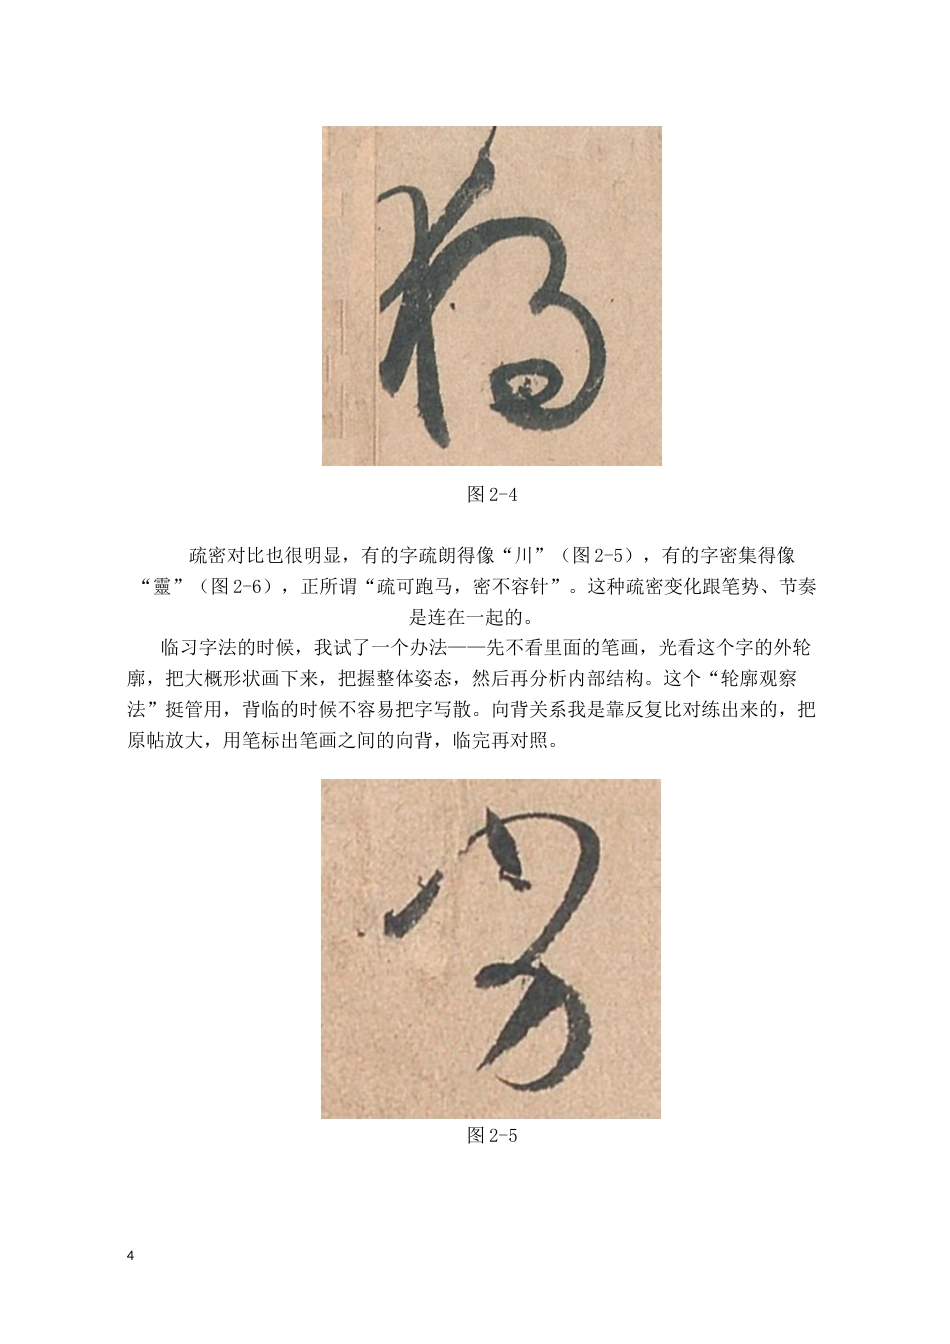 图 2-4
疏密对比也很明显，有的字疏朗得像“川”（图 2-5），有的字密集得像
“靈”（图 2-6），正所谓“疏可跑马，密不容针”。这种疏密变化跟笔势、节奏
是连在一起的。
临习字法的时候，我试了一个办法——先不看里面的笔画，光看这个字的外轮
廓，把大概形状画下来，把握整体姿态，然后再分析内部结构。这个“轮廓观察
法”挺管用，背临的时候不容易把字写散。向背关系我是靠反复比对练出来的，把
原帖放大，用笔标出笔画之间的向背，临完再对照。
图 2-5
4